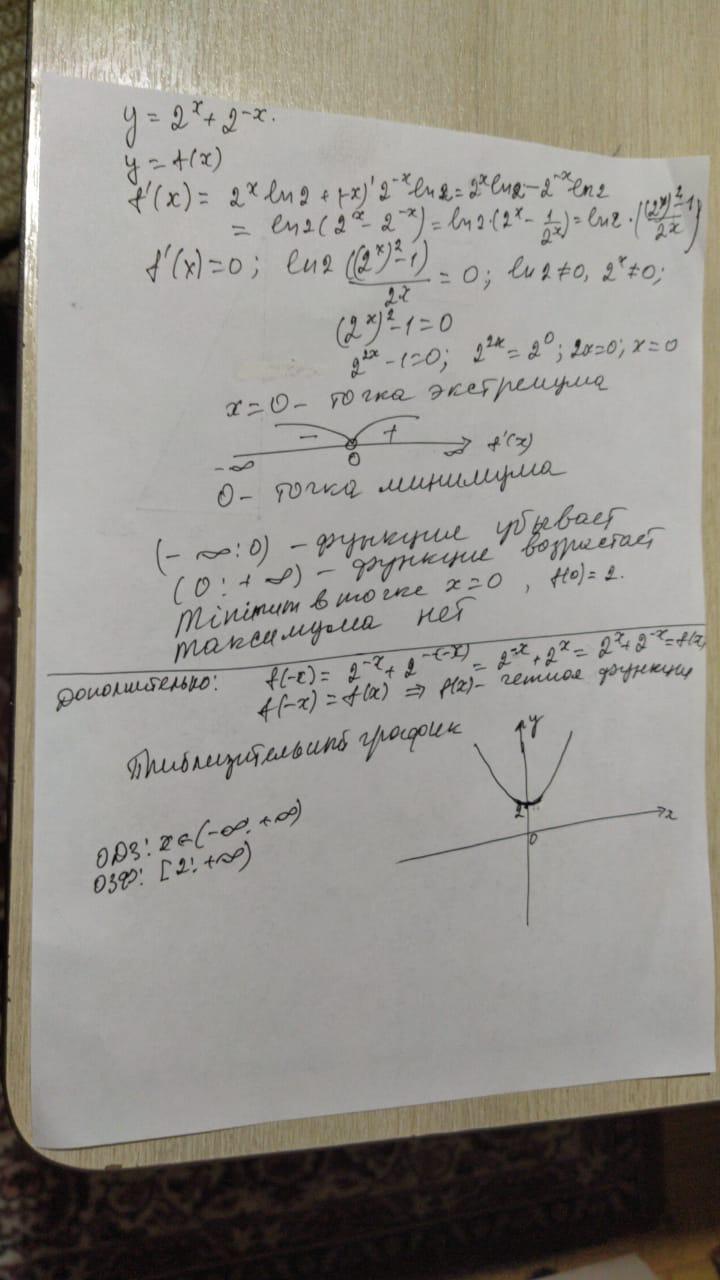 y = 2^x + 2^-x.
y = f(x)
f'(x) = 2^x ln2 + (-x)' 2^-x ln2 = 2^x ln2 - 2^-x ln2
= ln2 (2^x - 2^-x) = ln2 · (2^x - 1/2^x) = ln2 · ((2^x)^2 - 1)/2^x)
f'(x) = 0; ln2 ((2^x)^2 - 1)/2^x = 0; ln2 ≠ 0, 2^x ≠ 0;
(2^x)^2 - 1 = 0
2^2x - 1 = 0; 2^2x = 2^0; 2x = 0; x = 0
x = 0 - точка экстремума
- + f'(x)
-∞ 0 ∞
0 - точка минимума
(-∞; 0) - функция убывает
(0; +∞) - функция возрастает
Minimum в точке x = 0, f(0) = 2.
максимума нет
Дополнительно: f(-x) = 2^-x + 2^-(-x) = 2^-x + 2^x = 2^x + 2^-x = f(x)
f(-x) = f(x) ⇒ f(x) - четная функция
Приблизительный график
y
2
0
x
ОДЗ: x ∈ (-∞; +∞)
ОЗФ: [2; +∞)